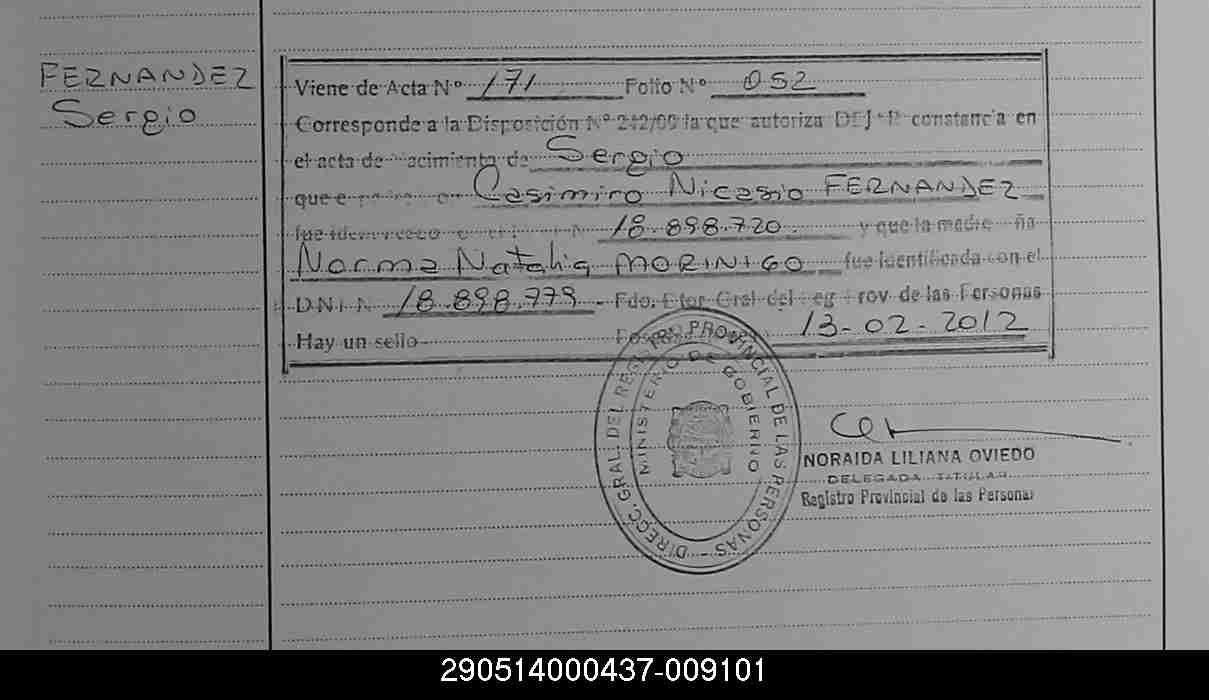 FERNANDEZ
Sergio
Viene de Acta Nº 171 Folio Nº 052
Corresponde a la Disposición Nº 242/00 la que autoriza DEJAR constancia en
el acta de nacimiento de Sergio
que e Casimiro Nicasio FERNANDEZ
18.898.720 y que la madre ña
Norma Natalia MORINIGO fue identificada con el
DNI N 18.898.779 - Fdo. Dtor. Gral del eg rov. de las Personas
Hay un sello 13-02-2012
DIRECC. GRAL. DEL REGISTRO PROVINCIAL DE LAS PERSONAS -
MINISTERIO DE GOBIERNO
NORAIDA LILIANA OVIEDO
DELEGADA TITULAR
Registro Provincial de las Personas
290514000437-009101